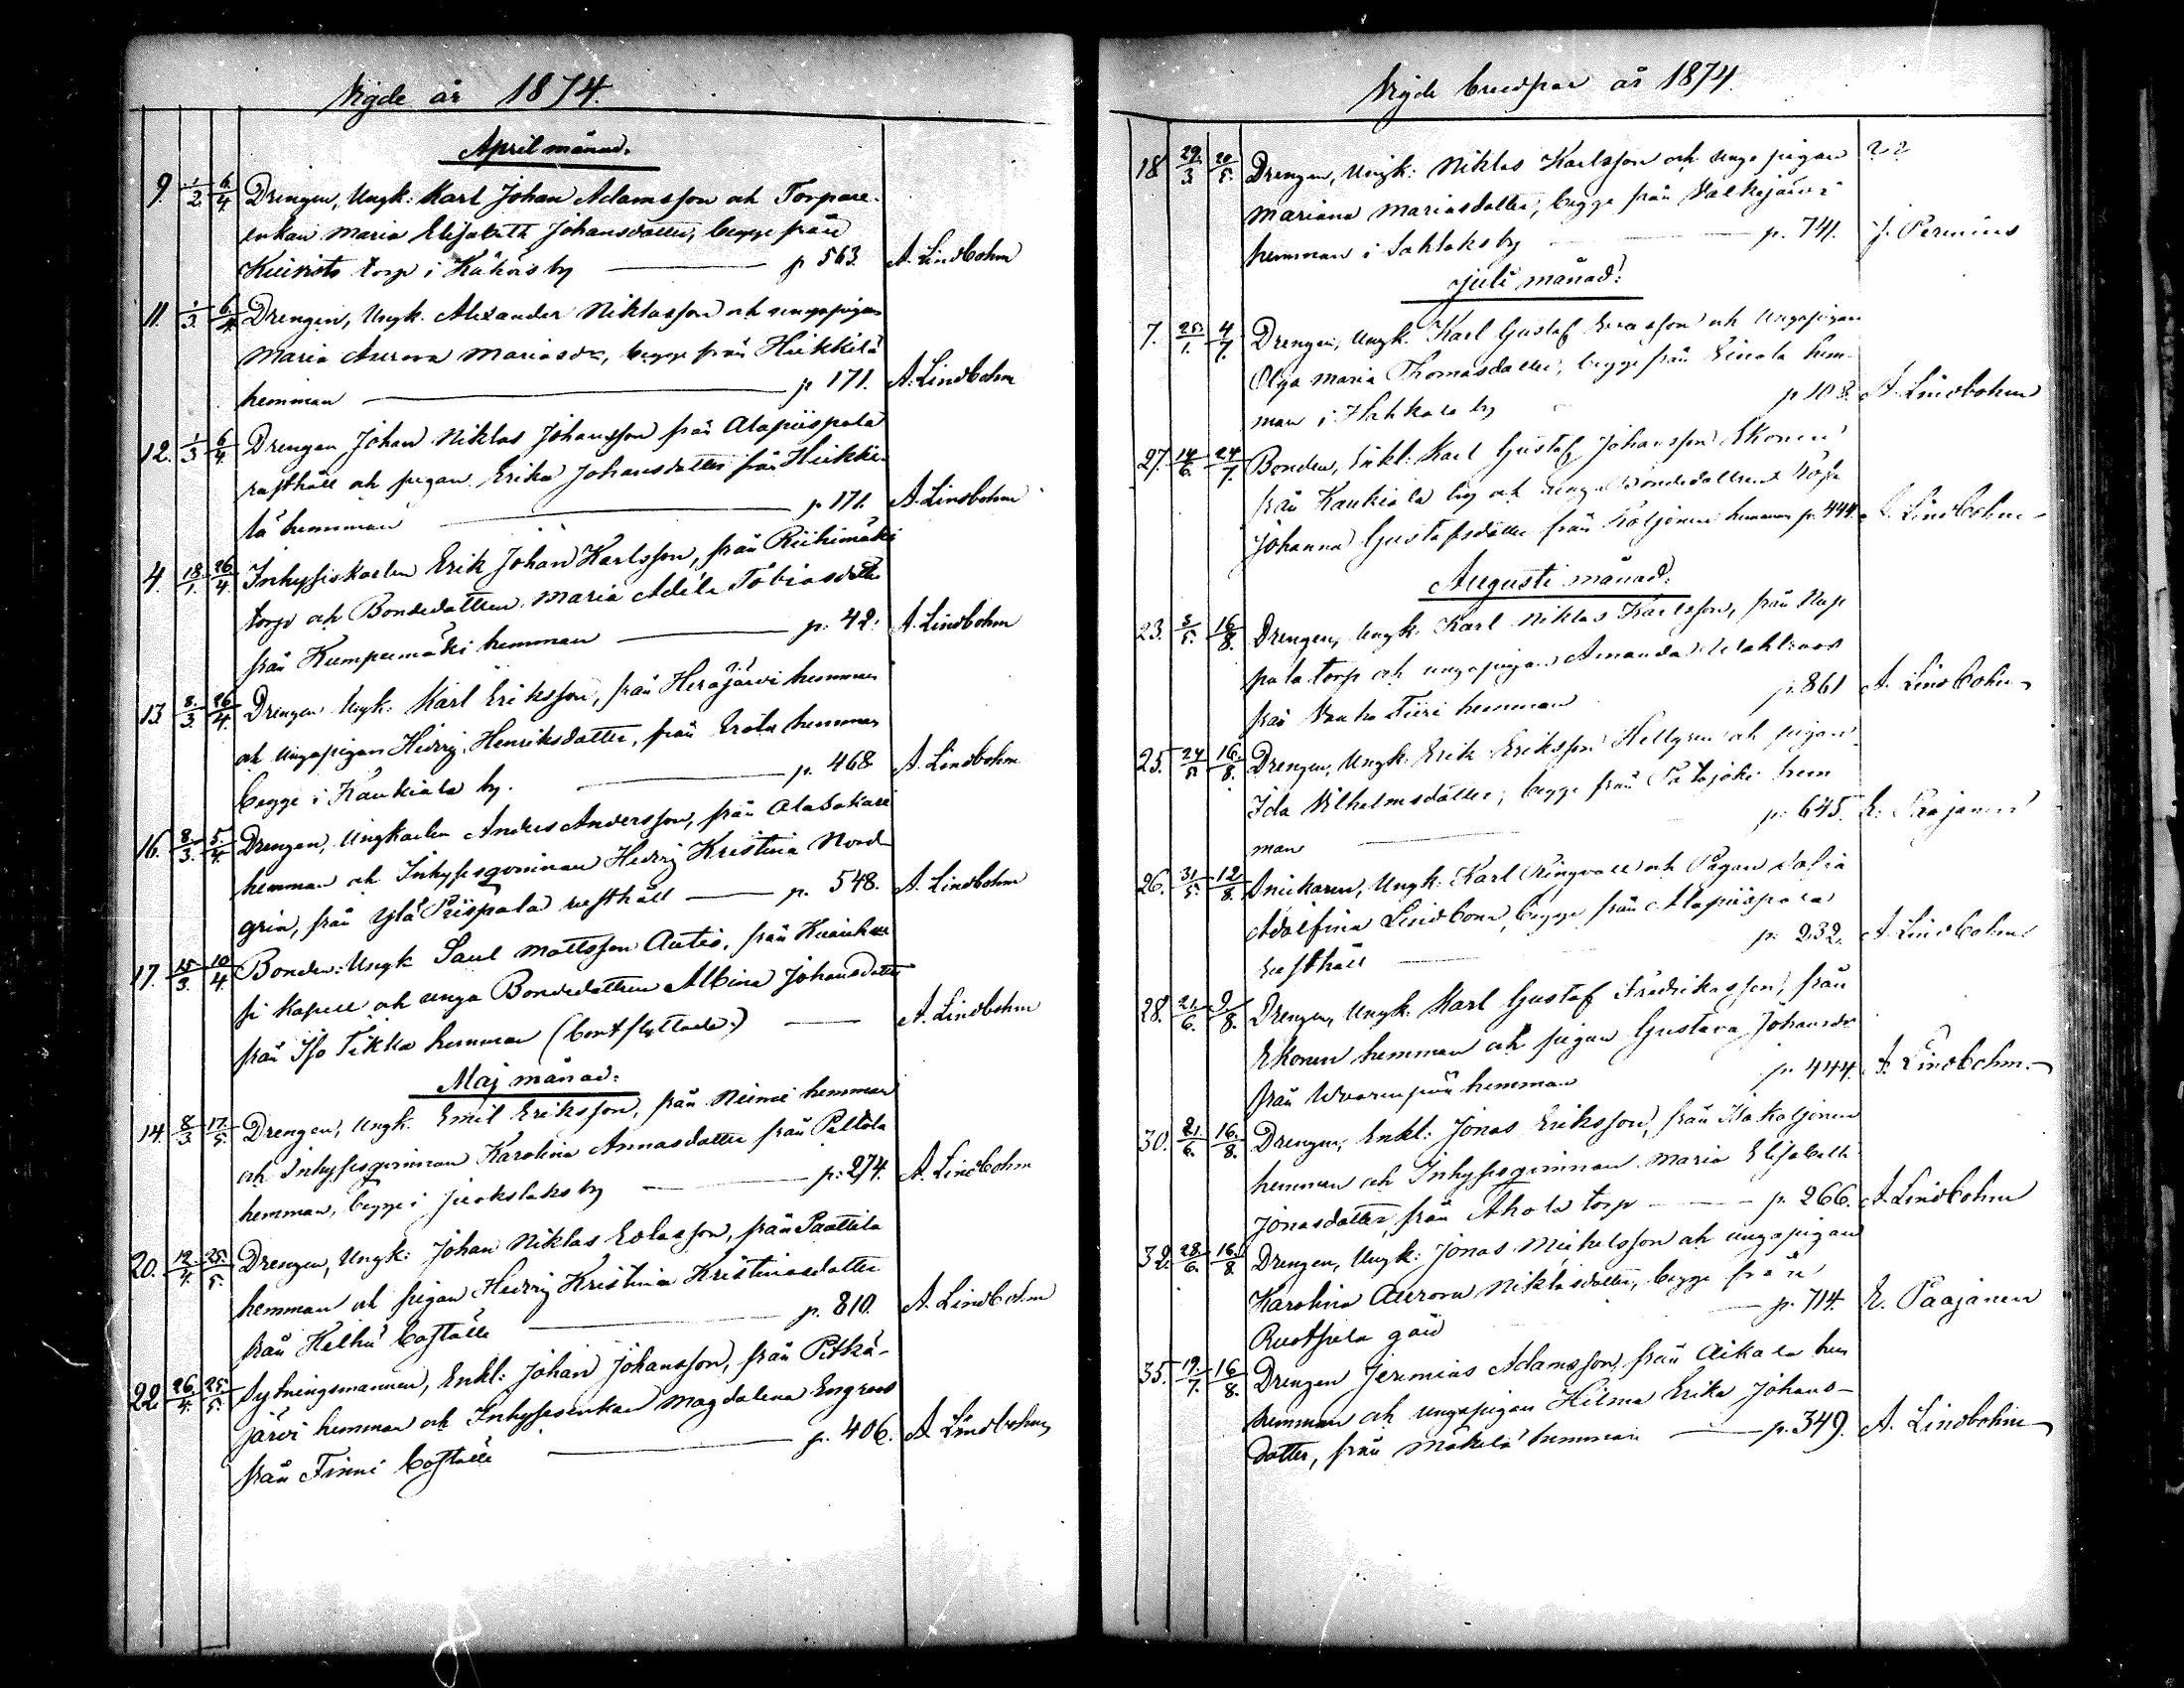 Vigde år 1874.
April månad.
9. 1/2. 6/4. Drengen, Ungk: Karl Johan Adamsson och Torpare-
enkan Maria Elisabeth Johansdotter, begge från
torp i by p 563. A. Lindbohm
11. 1/3. 6/4. Drengen, Ungk. Alexander Niklasson och ungapigan
Maria Aurora Mariasdr, begge från Heikkilä
hemman p 171. A. Lindbohm
12. 1/3 6/4. Drengen Johan Niklas Johansson från Alapiispala
rusthåll och pigan Erika Johansdotter från Heikki-
lä hemman p. 171. A. Lindbohm
4. 18/1. 26/4. Inhysiskarlen Erik Johan Karlsson, från Riihimäki
torp och Bondedottren Maria Adéle Tobiasdotter
från Kumpumäki hemman p. 42. A. Lindbohm
13. 8/3. 26/4. Drengen Ungk: Karl Eriksson, från Herajärvi hemman
och ungapigan Hedvig Henriksdotter, från Erola hemman
begge i Kaukiala by. p. 468 A. Lindbohm
16. 8/3. 5/4. Drengen, Ungkarlen Anders Andersson, från
hemman och Inhysesqvinnan Hedvig Kristina Nord-
grén, från Ylä Piispala rusthåll p. 548. A. Lindbohm
17. 15/3. 10/4. Bonden: Ungk Saul Mattsson Autio, från
kapell och unga Bondedottren Albina Johansdotter
från Iso Tikka hemman (bortflyttade.) A. Lindbohm
Maj månad:
14. 8/3 17/5. Drengen, Ungk. Emil Eriksson, från Niemi hemman
och Inhysesqvinnan Karolina Annasdotter från Peltola
hemman, begge i by p. 274. A. Lindbohm
20. 12/4. 25/5. Drengen, Ungk: Johan Niklas Evasson, från Paattila
hemman och pigan Hedvig Kristina Kristinasdotter
från Kelhä boställe p. 810. A. Lindbohm
22. 26/4. 25/5. Sytningsmannen, Enkl: Johan Johansson, från Pitkä-
järvi hemman och Inhysesenkan Magdalena Engroos
från Finni boställe p. 406. A. Lindbohm
Vigde brudpar år 1874.
18 29/3 20/5. Drengen, Ungk: Niklas Karlsson och unga pigan
Mariana Mariasdotter, begge från Valkjärvi
hemman i Sahlaks by p. 741. J. Perenius
Juli månad:
7. 25/1. 4/7. Drengen, Ungk. Karl Gustaf Evasson och Ungapigan
Olga Maria Thomasdotter, begge från Einola hem-
man i Hahkala by p 108. A. Lindbohm
27. 14/6. 24/7. Bonden, Enkl: Karl Gustaf Johansson Ekonen
från Kaukiala by och unga Bondedottren
Johanna Gustafsdotter från Koljonen hemman p. 444. A. Lindbohm
Augusti månad:
23. 3/5. 16/8. Drengen, Ungk. Karl Niklas Karlsson, från
torp och ungapigan Amanda Wahlroos
från Vanha Tiiri hemman p. 861 A. Lindbohm
25. 24/5. 16/8. Drengen, Ungk. Erik Eriksson Hellgren och pigan
Ida Vilhelmsdotter, begge från Patajoki hem
man p. 645. E. Paajanen
26. 31/5. 12/8. Snickaren, Ungk: Karl Ringvall och Pigan Sofia
Adolfina Lindbom, begge från Alapiispala
rusthåll p. 232. A. Lindbohm
28. 21/6. 9/8. Drengen, Ungk. Karl Gustaf Fredriksson, från
Ekonen hemman och pigan Gustava Johansdr
från hemman p. 444. A. Lindbohm
30. 21/6. 16/8. Drengen, Enkl: Jonas Eriksson, från Isokoljonen
hemman och Inhysesqvinnan Maria Elisabeth
Jonasdotter, från Ahola torp p. 266. A. Lindbohm
32. 28/6. 16/8. Drengen, Ungk: Jonas Mickelsson och ungapigan
Karolina Aurora Niklasdotter, begge från
Ruotsila gård p. 714. E. Paajanen
35. 19/7. 16/8. Drengen Jeremias Adamsson från Aikala
hemman och ungapigan Hilma Erika Johans-
dotter, från Mäkelä hemman p. 349. A. Lindbohm